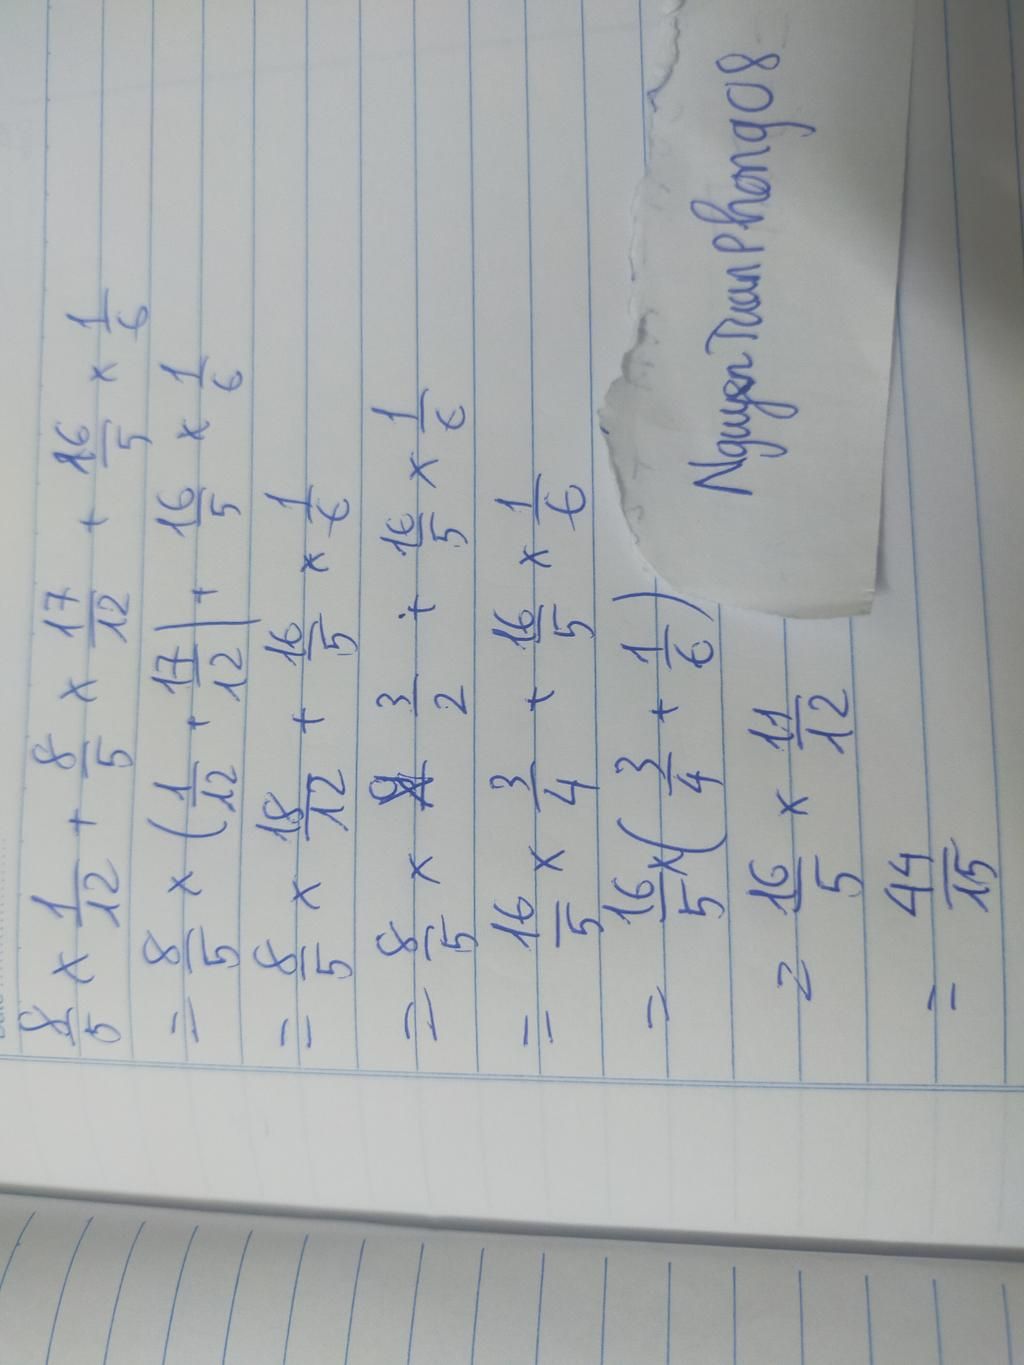 8/5 x 1/12 + 8/5 x 17/12 + 16/5 x 1/6
= 8/5 x (1/12 + 17/12) + 16/5 x 1/6
= 8/5 x 18/12 + 16/5 x 1/6
= 8/5 x 3/2 + 16/5 x 1/6
= 16/5 x 3/4 + 16/5 x 1/6
= 16/5 x (3/4 + 1/6)
= 16/5 x 11/12
= 44/15
NguyenTuanPhong08